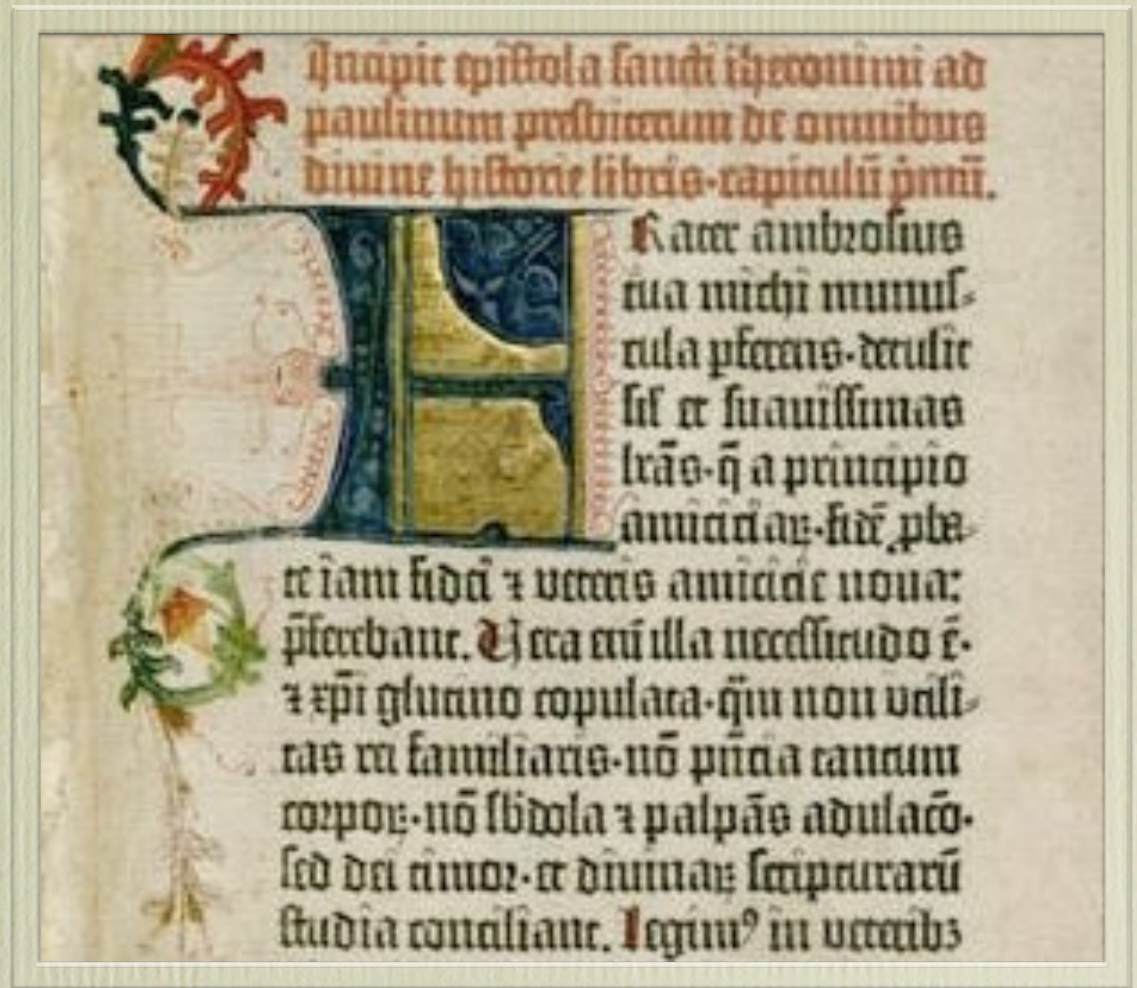 Incipit epistola sancti iheronimi ad
paulinum presbiterum de omnibus
diuine historie libris·capitulū p̄mū.
FRater ambrosius
tua michi munus-
cula pferens·detulit
sil' et suauissimas
lrās·q̄ a principio
amiciciaꝝ·fidē ꝓba-
te iam fidei ⁊ veteris amicicie noua:
p̄ferebant. Vera em̄ illa necessitudo ē·
⁊ xp̄i glutino copulata·q̄m non vtili-
tas rei familiaris·nō p̄ncia tantum
corpoꝝ·nō sbdola ⁊ palpās adulacō·
sed dei timor·et diuinaꝝ scripturarū
studia conciliant. Legimꝰ in veteribꝫ